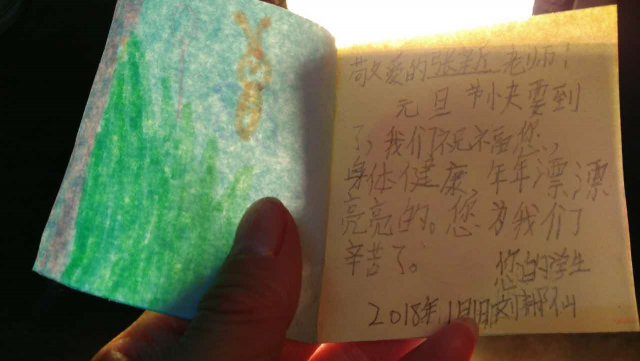 敬爱的张新老师！
元旦节快要到
了，我们祝福您，
身体健康，年年漂漂
亮亮的。您为我们
辛苦了。
您的学生
2018年1月1日